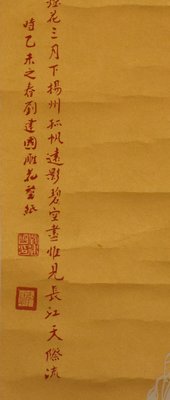 煙花三月下揚州孤帆遠影碧空盡惟見長江天際流
時乙未之春劉建國雕花塹紙